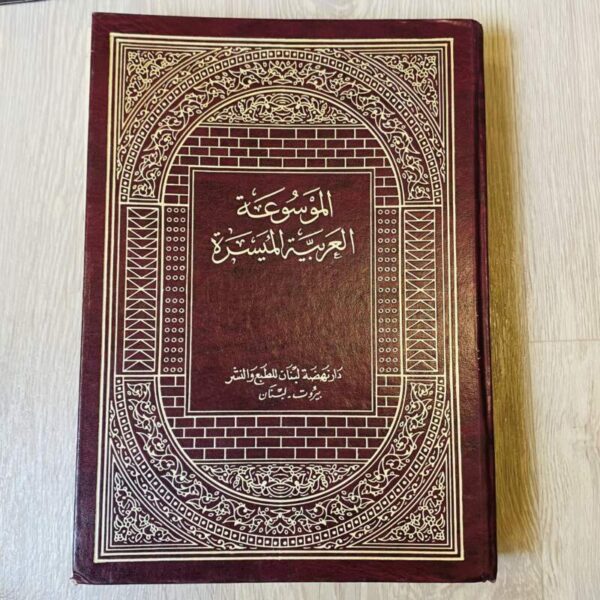 الموَسُوعَة
العَربيَّة المُيسَّرة
دَار نهضَة لبنَان للطبع وَالنشر
بيروت - لبنان